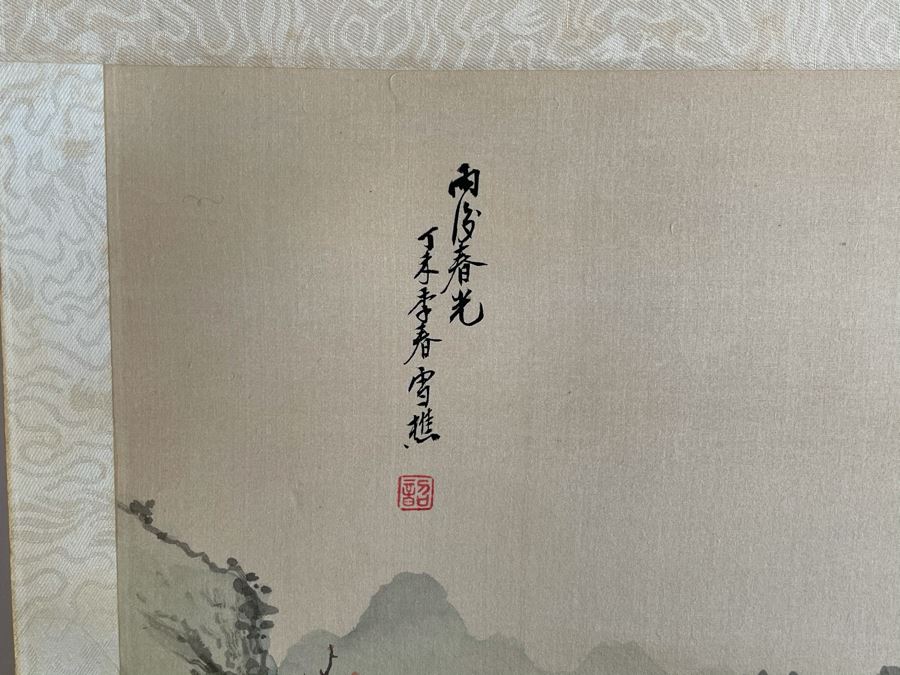 雨後春光
丁未季春雪樵
韶